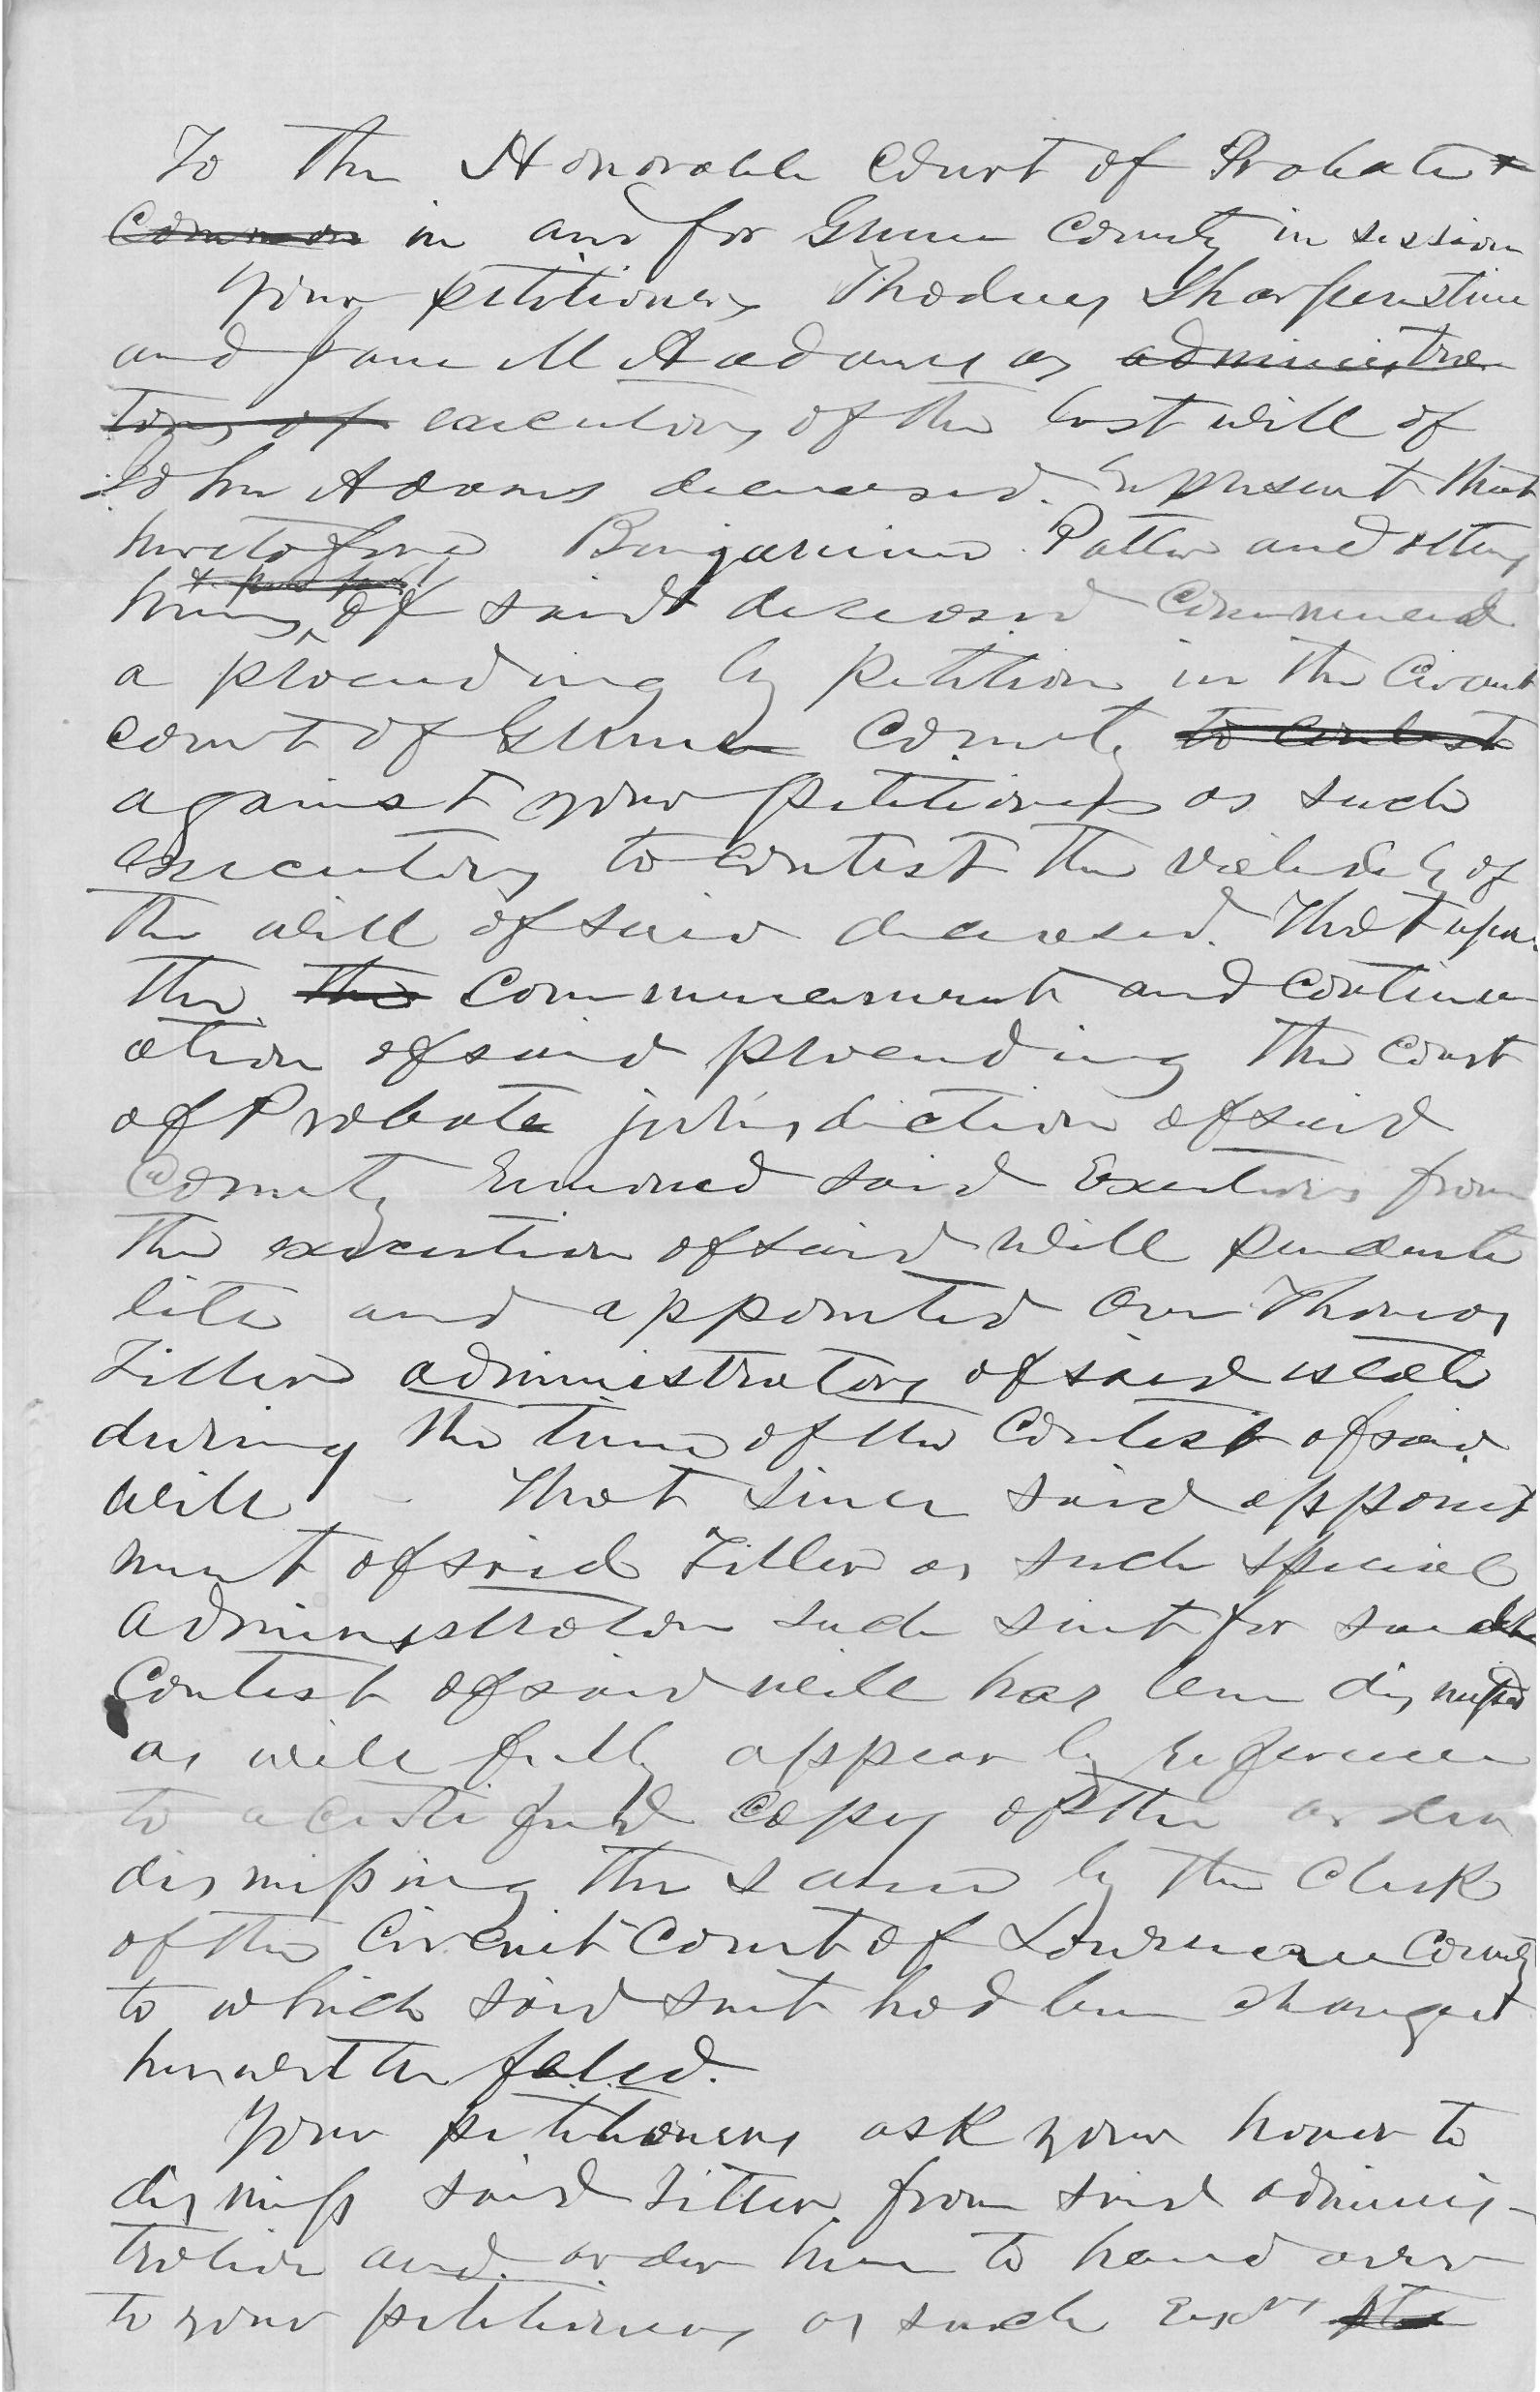 To the Honorable Court of Probate &
Common in and for Greene County in session
Your petitioners Rhodney Sharpenstine
and Jane M Aadams as administra
tors of executors of the last will of
John Adams deceased. represent that
heretofore Bingamin Patton and others
heirs of said deceased Commenced
a proceeding by petition in the Circuit
court of Greene County to contest
against your petitioners as such
executors to contest the validity of
the will of said deceased. That upon
the the commencement and continu
ation of said proceeding the court
of Probate jurisdiction of said
County removed said Executors from
the execution of said will pendente
lite and appointed one Thomas
Tiller administrator of said estate
during the time of the contest of said
will - That since said appoint
ment of said Tiller as such special
administrator such suit for said
Contest of said will has been dismissed
as will fully appear by reference
to a certified copy of the order
dismissing the same by the Clerk
of the Circuit Court of Lawrence County
to which said suit had been changed
herewith filed.
Your petitioners ask your honor to
dismiss said Tiller from said adminis-
tration and order him to hand over
to your petitioners as such Exrs